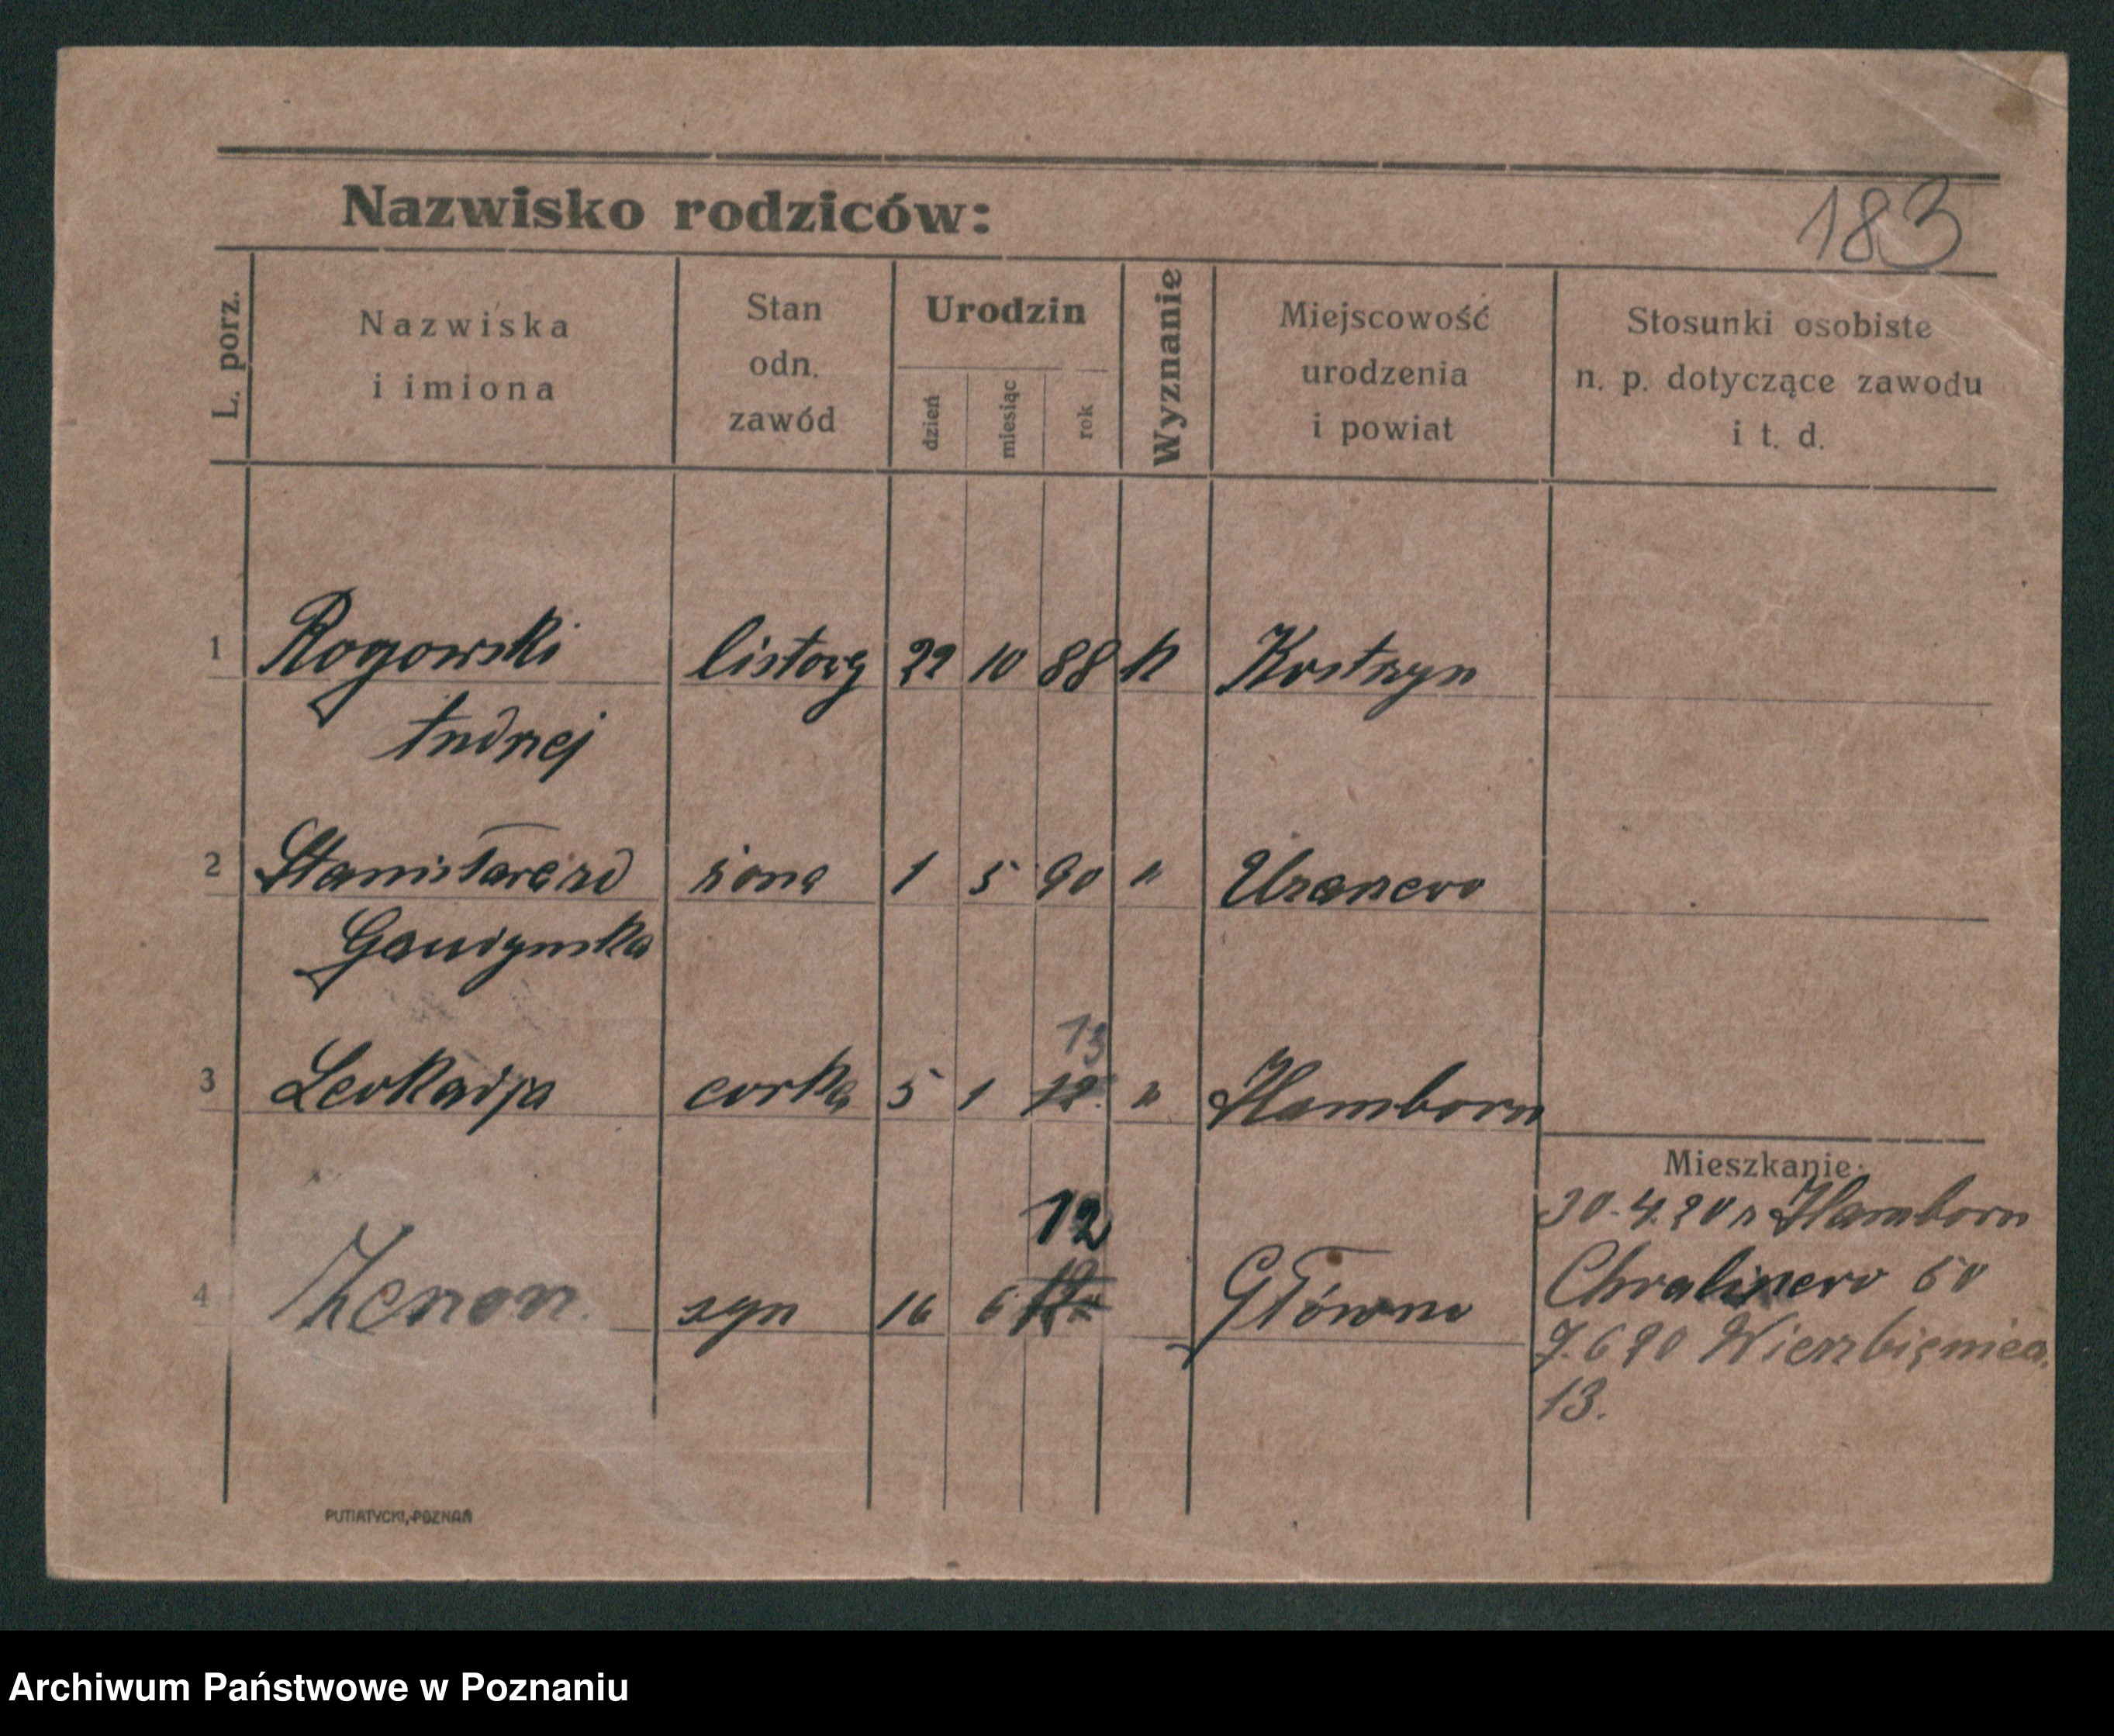 Nazwisko rodziców:
183
L. porz.
Nazwiska
i imiona
Stan
odn.
zawód
Urodzin
dzień
miesiąc
rok
Wyznanie
Miejscowość
urodzenia
i powiat
Stosunki osobiste
n. p. dotyczące zawodu
i t. d.
1 Rogowski listowy 29 10 88 k Kostrzyn
Andrzej
2 Stanisława zd żona 1 5 90 "
13
3 Leokadja corka 5 1 12 " Hamborn
Mieszkanie:
12
30.4.20 z Hamborn
4 Zenon syn 16 6 Główno
Chwaliszewo 60
7.6 20 Wierzbięcice
13.
PUTIATYCKI, POZNAŃ
Archiwum Państwowe w Poznaniu